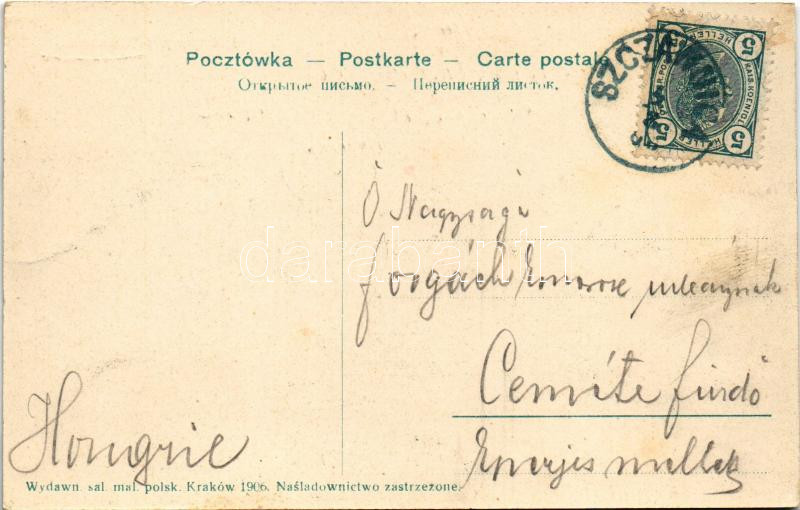 Pocztówka — Postkarte — Carte postale
Открытое письмо. — Переписний листок.
SZCZAWNICA
5 5
HELLER
KAIS. KOENIGL.
5 5
HELLER
Ő Nagysága
Forgách
Cemétefürdő
Eperjes mellett
Hongrie
Wydawn. sal. mal. polsk. Kraków 1906. Naśladownictwo zastrzeżone.
darabanth